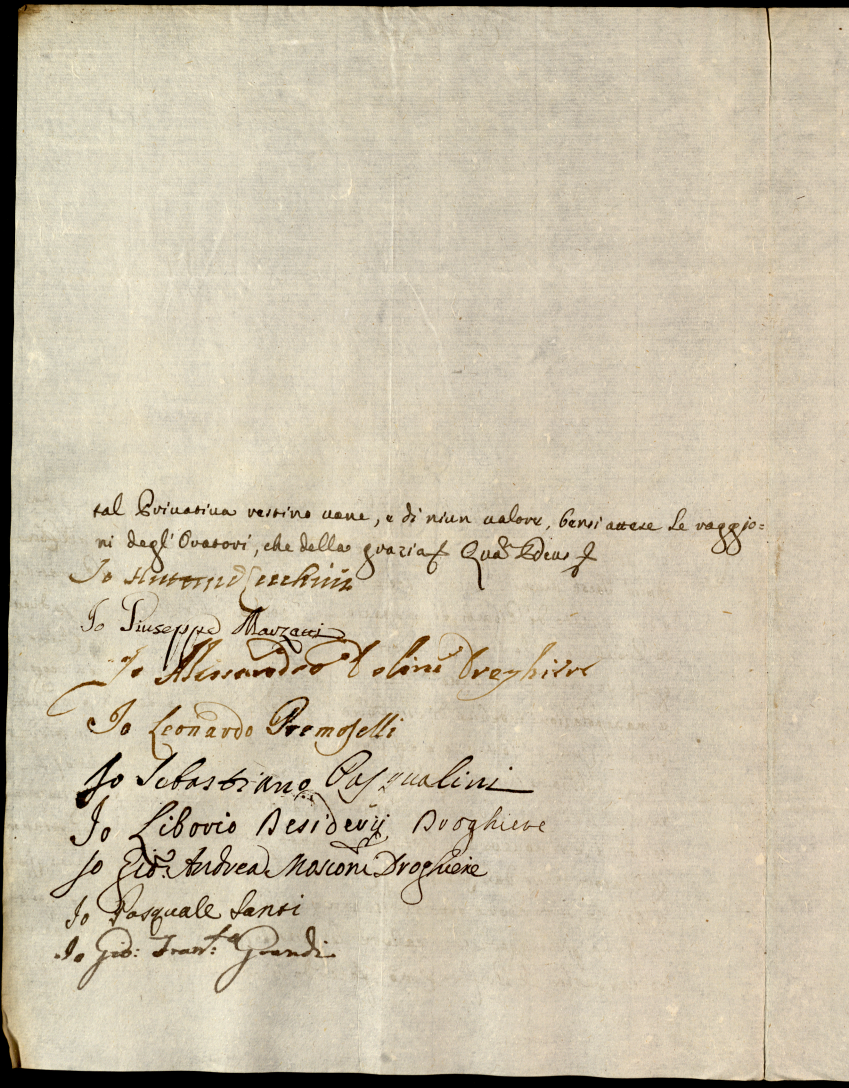 tal Privativa restino vane, e di niun valore, bensi attese le raggio=
ni degl'Oratori, che della grazia Quam Deus
Io Antonio Cecchini
Io Giuseppe Marzani
Io Alessandro Droghiere
Io Leonardo Premoselli
Io Sebastiano Pasqualini
Io Liborio Desiderij Droghiere
Io Gio: Andrea Marconi Droghiere
Io Pasquale Santi
Io Gio: Fran.co Grandi